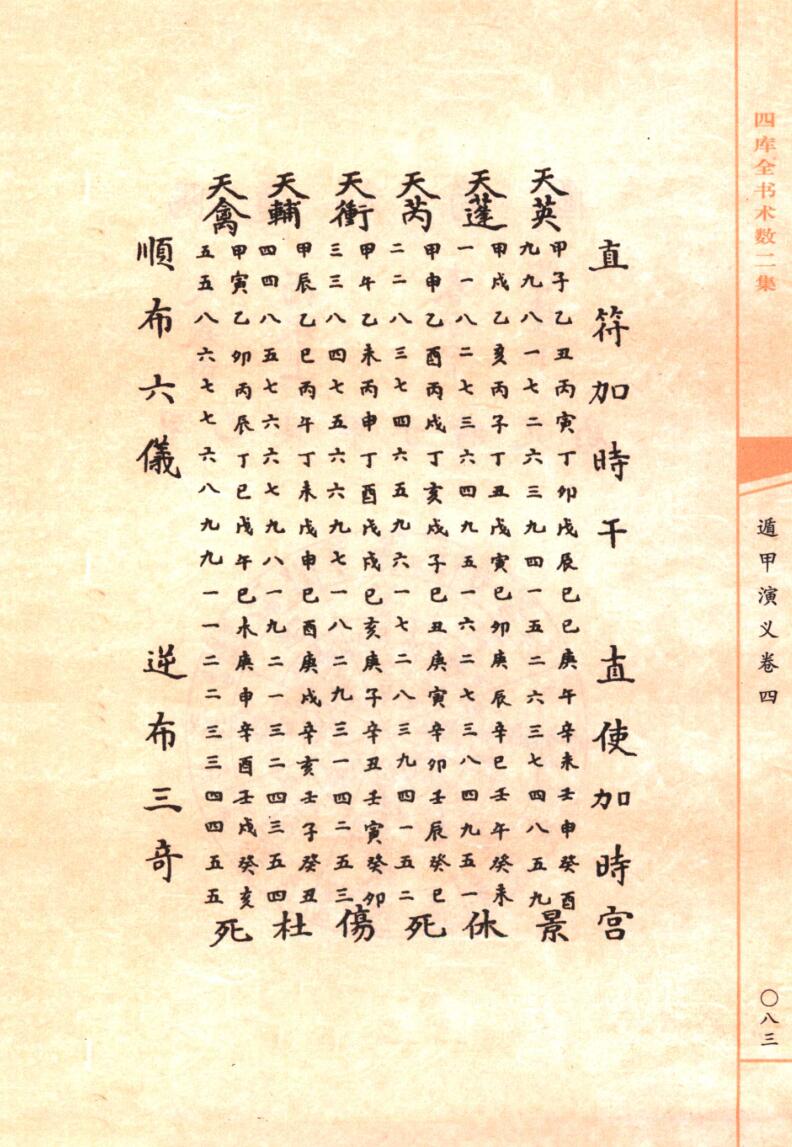 四库全书术数二集
遁甲演义卷四
〇八三
直符加時干　直使加時宮
天英
甲子乙丑丙寅丁卯戊辰己巳庚午辛未壬申癸酉
九九八一七二六三九四一五二六三七四八五九
景
天蓬
甲戌乙亥丙子丁丑戊寅己卯庚辰辛巳壬午癸未
一一八二七三六四九五一六二七三八四九五一
休
天芮
甲申乙酉丙戌丁亥戊子己丑庚寅辛卯壬辰癸巳
二二八三七四六五九六一七二八三九四一五二
死
天衝
甲午乙未丙申丁酉戊戌己亥庚子辛丑壬寅癸卯
三三八四七五六六九七一八二九三一四二五三
傷
天輔
甲辰乙巳丙午丁未戊申己酉庚戌辛亥壬子癸丑
四四八五七六六七九八一九二一三二四三五四
杜
天禽
甲寅乙卯丙辰丁巳戊午己未庚申辛酉壬戌癸亥
五五八六七七六八九九一一二二三三四四五五
死
順布六儀　逆布三奇